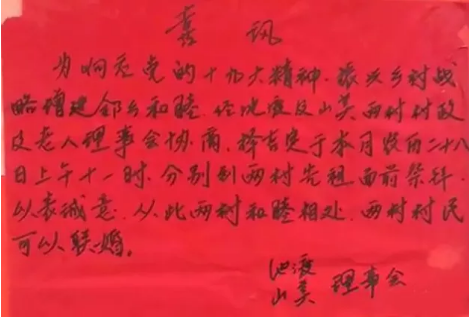 喜讯
为响应党的十九大精神、振兴乡村战
略增建邻乡和睦、经池渡及山美两村村政
及老人理事会协商、择吉定于本月农历二十八
日上午十一时、分别到两村先祖面前祭拜、
以表诚意、从此两村和睦相处、两村村民
可以联婚。
池渡
山美 理事会